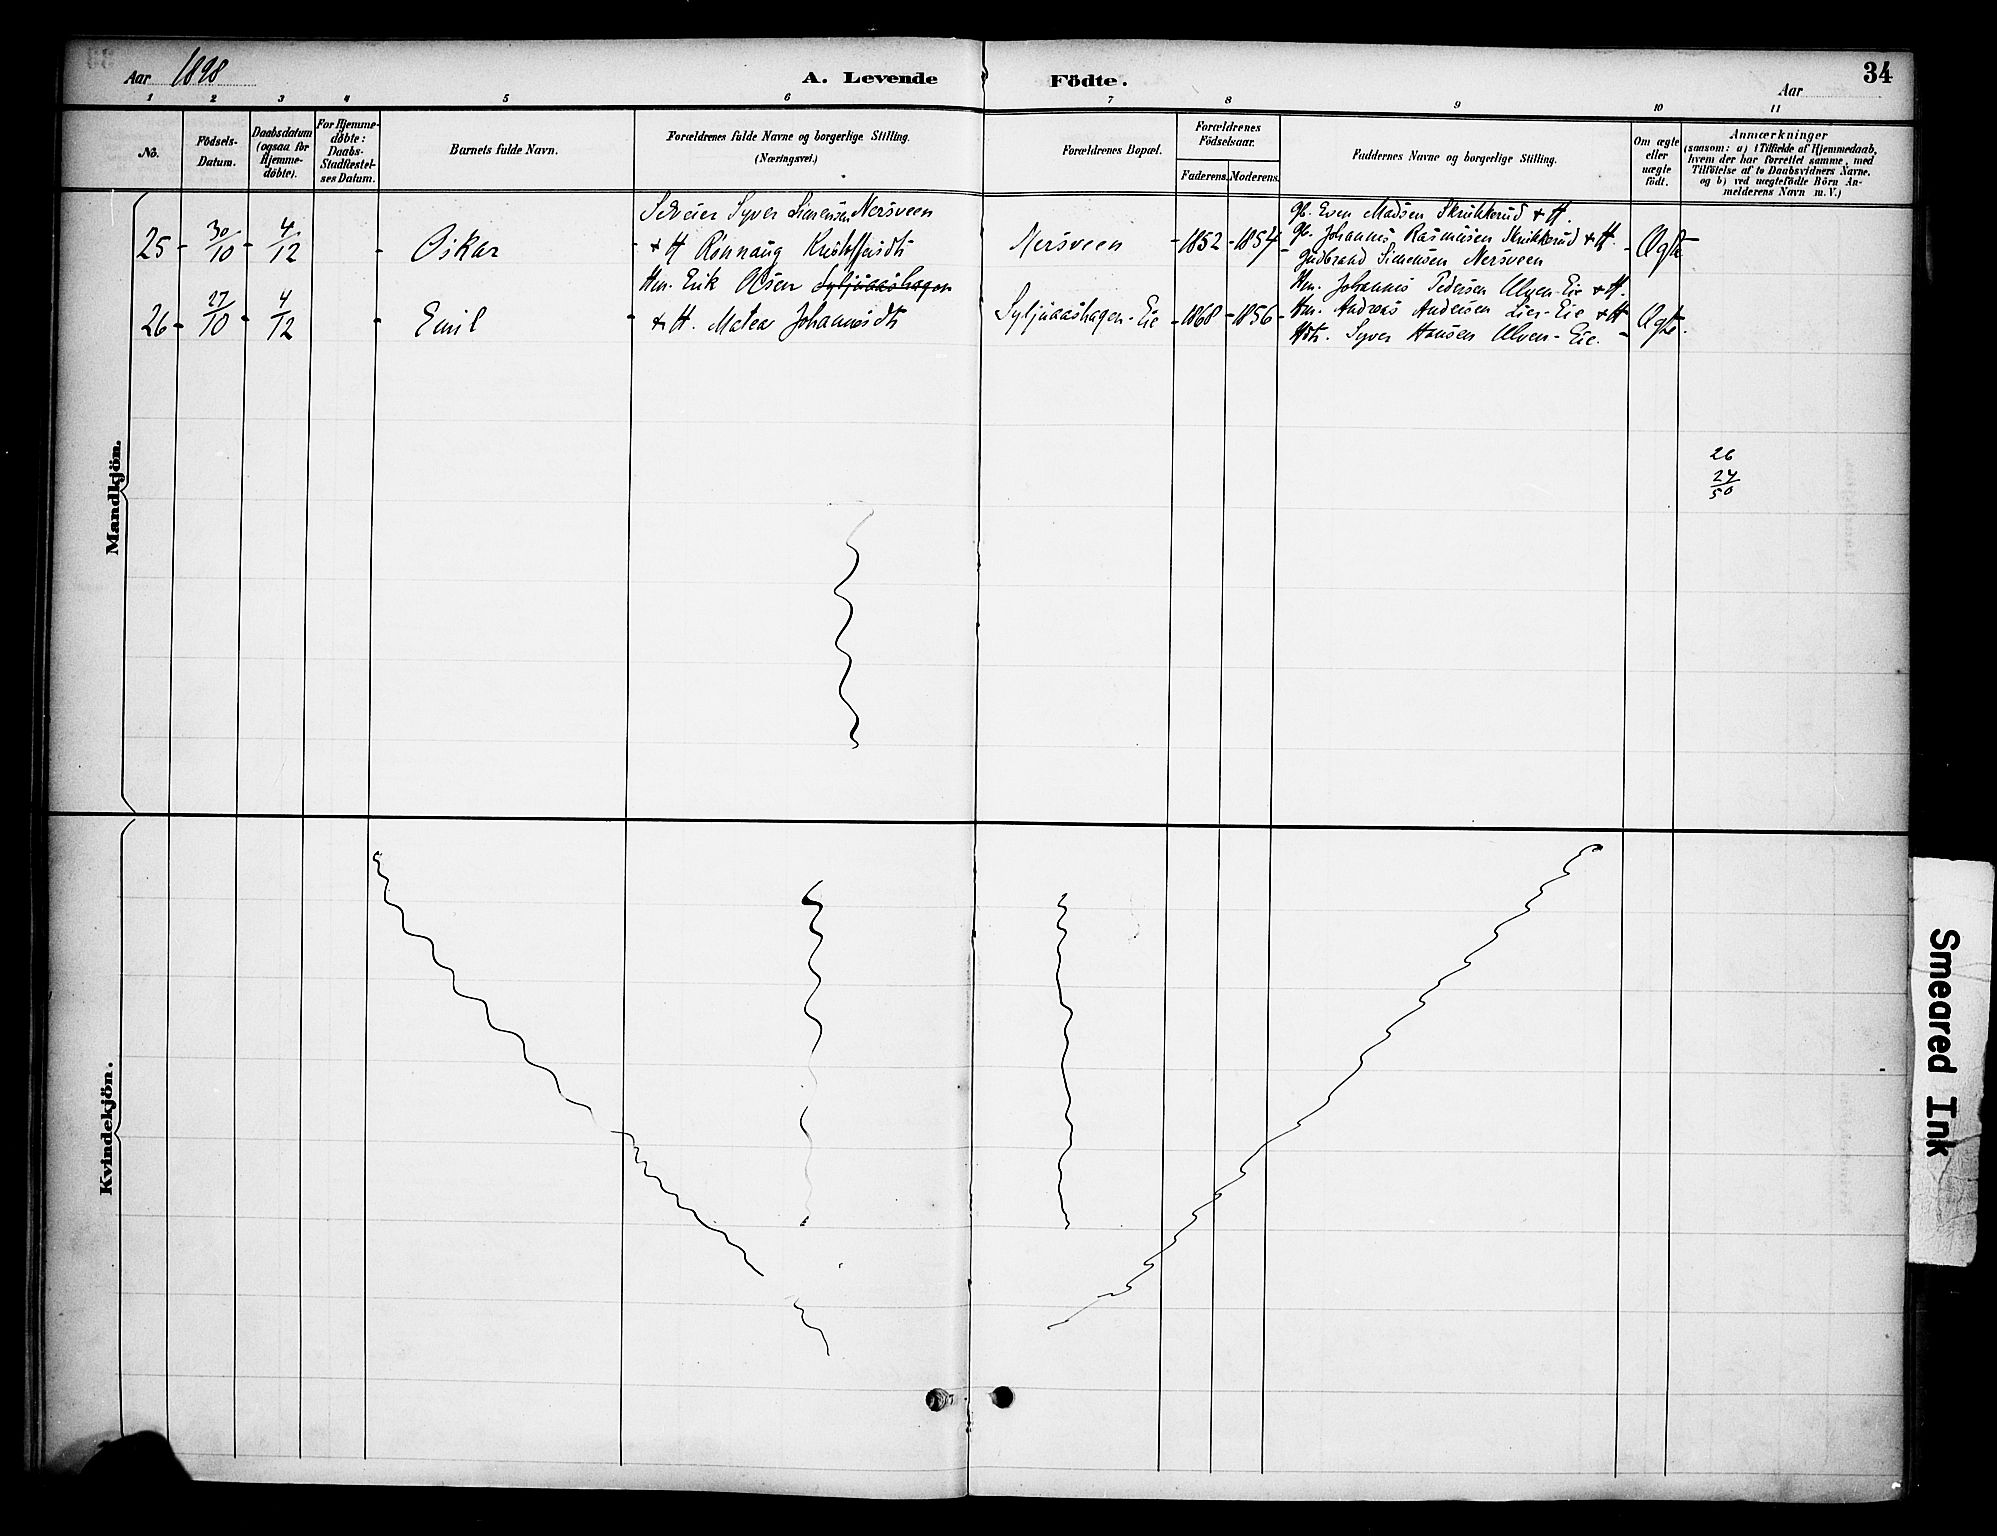 34
Aar 1898
A. Levende Födte.
Aar
1 2 3 4 5 6 7 8 9 10 11
No.
Födsels-Datum.
Daabsdatum (ogsaa for Hjemme-döbte).
For Hjemme-döbte: Daabs-Stadfæstel-ses Datum.
Barnets fulde Navn.
Forældrenes fulde Navne og borgerlige Stilling. (Næringsvei.)
Forældrenes Bopæl.
Forældrenes Födselsaar.
Faderens. Moderens.
Faddernes Navne og borgerlige Stilling.
Om ægte eller uægte födt.
Anmærkninger
(saasom: a) i Tilfælde af Hjemmedaab,
hvem der har forrettet samme, med
Tilföielse af to Daabsvidners Navne.
og b) ved uægtefödte Börn An-
melderens Navn m. V.)
Mandkjön.
Selveier Syver Simensen Nersveen
25 - 30/10 - 4/12 - Oskar - & H Rönnaug Kristoffersdtr Nersveen - 1852 - 1854 -
Gb. Even Madsen Skrukkerud & H.
Gb. Johannes Rasmusen Skrukkerud & H.
Gudbrand Simensen Nersveen
- Ægte
Hm. Erik Olsen Syljuaashagen
26 - 27/10 - 4/12 - Emil - & H. Matea Johannesdtr Syljuaashagen - Eie - 1868 - 1856 -
Hm. Johannes Pedersen Ulven-Eie & H.
Hm. Andreas Andersen Lier-Eie & H
Syver Hansen Ulven-Eie. - Ægte.
26
24
50
Kvindekjön.
Smeared Ink